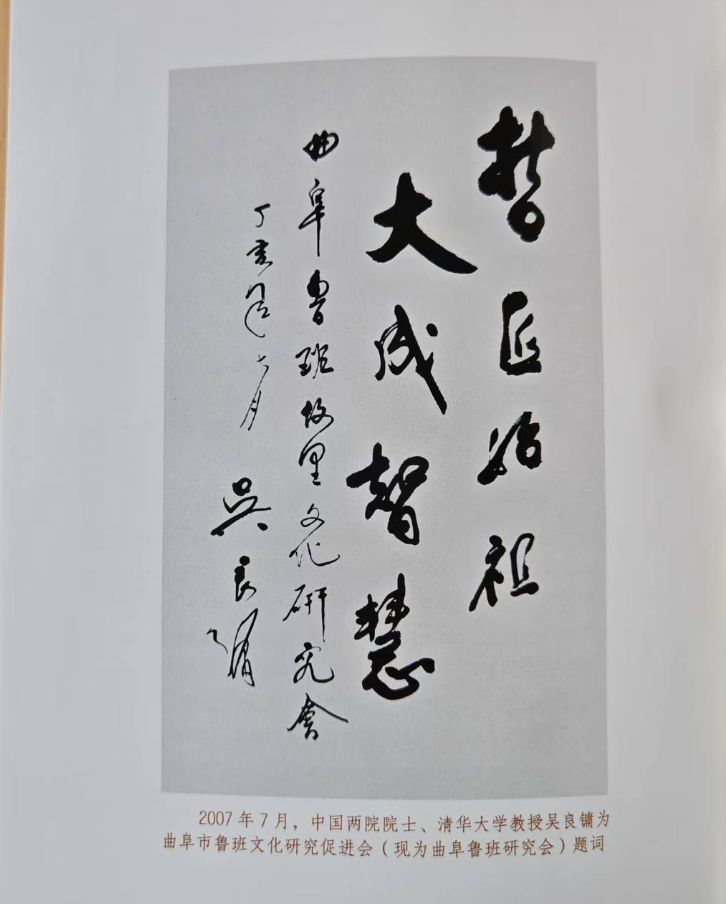 哲匠始祖
大成智慧
曲阜鲁班故里文化研究會
丁亥年七月
吴良镛
2007年7月，中国两院院士、清华大学教授吴良镛为
曲阜市鲁班文化研究促进会（现为曲阜鲁班研究会）题词